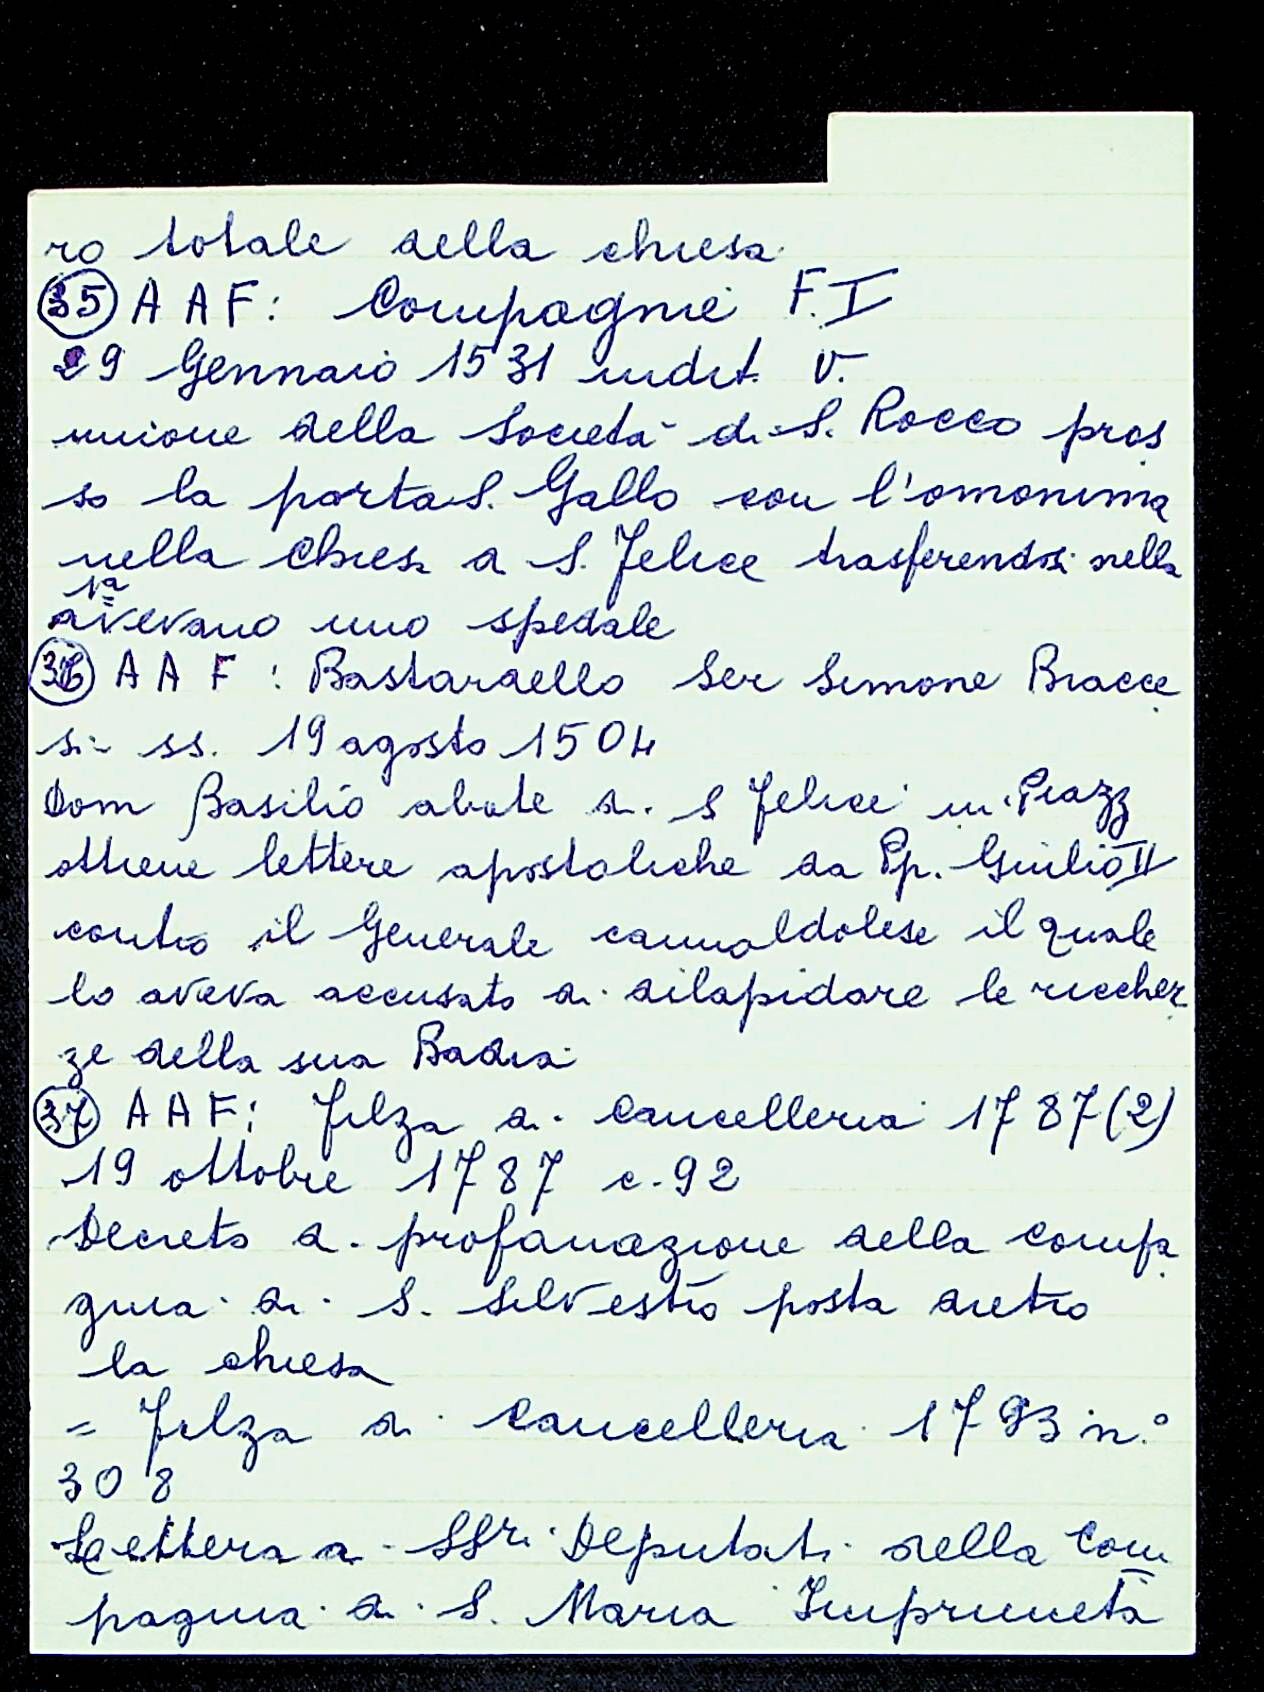 ro totale della chiesa
35 AAF: Compagnie F. I
29 Gennaio 1531 indit. V.
unione della Società di S. Rocco pres
so la porta S. Gallo con l'omonima
nella chiesa di S. Felice trasferendosi nella
1ª
avevano uno spedale
36 AAF: Bastardello Ser Simone Bracce
si ss. 19 agosto 1504
Dom Basilio abate di S Felice in Piazz
ottiene lettere apostoliche da Pp. Giulio II
contro il Generale camaldolese il quale
lo aveva accusato di dilapidare le ricchez
ze della sua Badia
37 AAF: Filza di Cancelleria 1787(2)
19 ottobre 1787 c. 92
Decreto di profanazione della compa
gnia di S. Silvestro posta dietro
la chiesa
= Filza di Cancelleria 1793 n.°
308
Lettera a SSri Deputati della Com
pagnia di S. Maria Impruneta